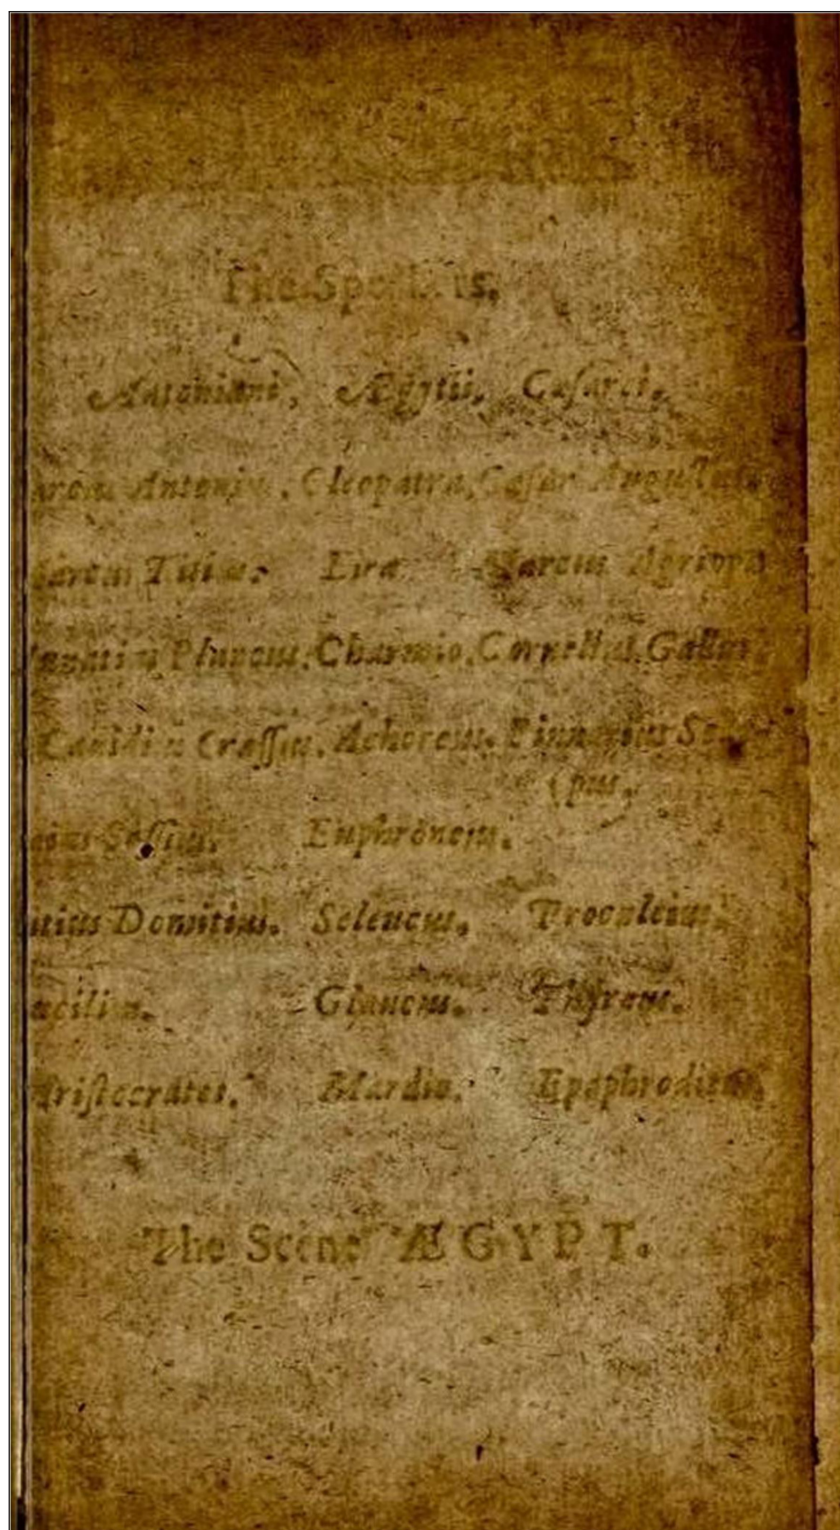 The Speakers.
Antoniani, Ægytii, Cæsarei,
Antonius. Cleopatra, Cæsar Augustus
Titius. Eira Marcus Agrippa
Plancus. Charmio. Cornelius Gallus
Canidius Crassus. Achoreus. Pinnarius Scar
(pus.
Sossius. Euphroneus.
Domitius. Seleucus. Proculeius.
Glaucus. Thyreus.
Aristocrates. Mardio. Epaphroditus.
The Scene ÆGYPT.